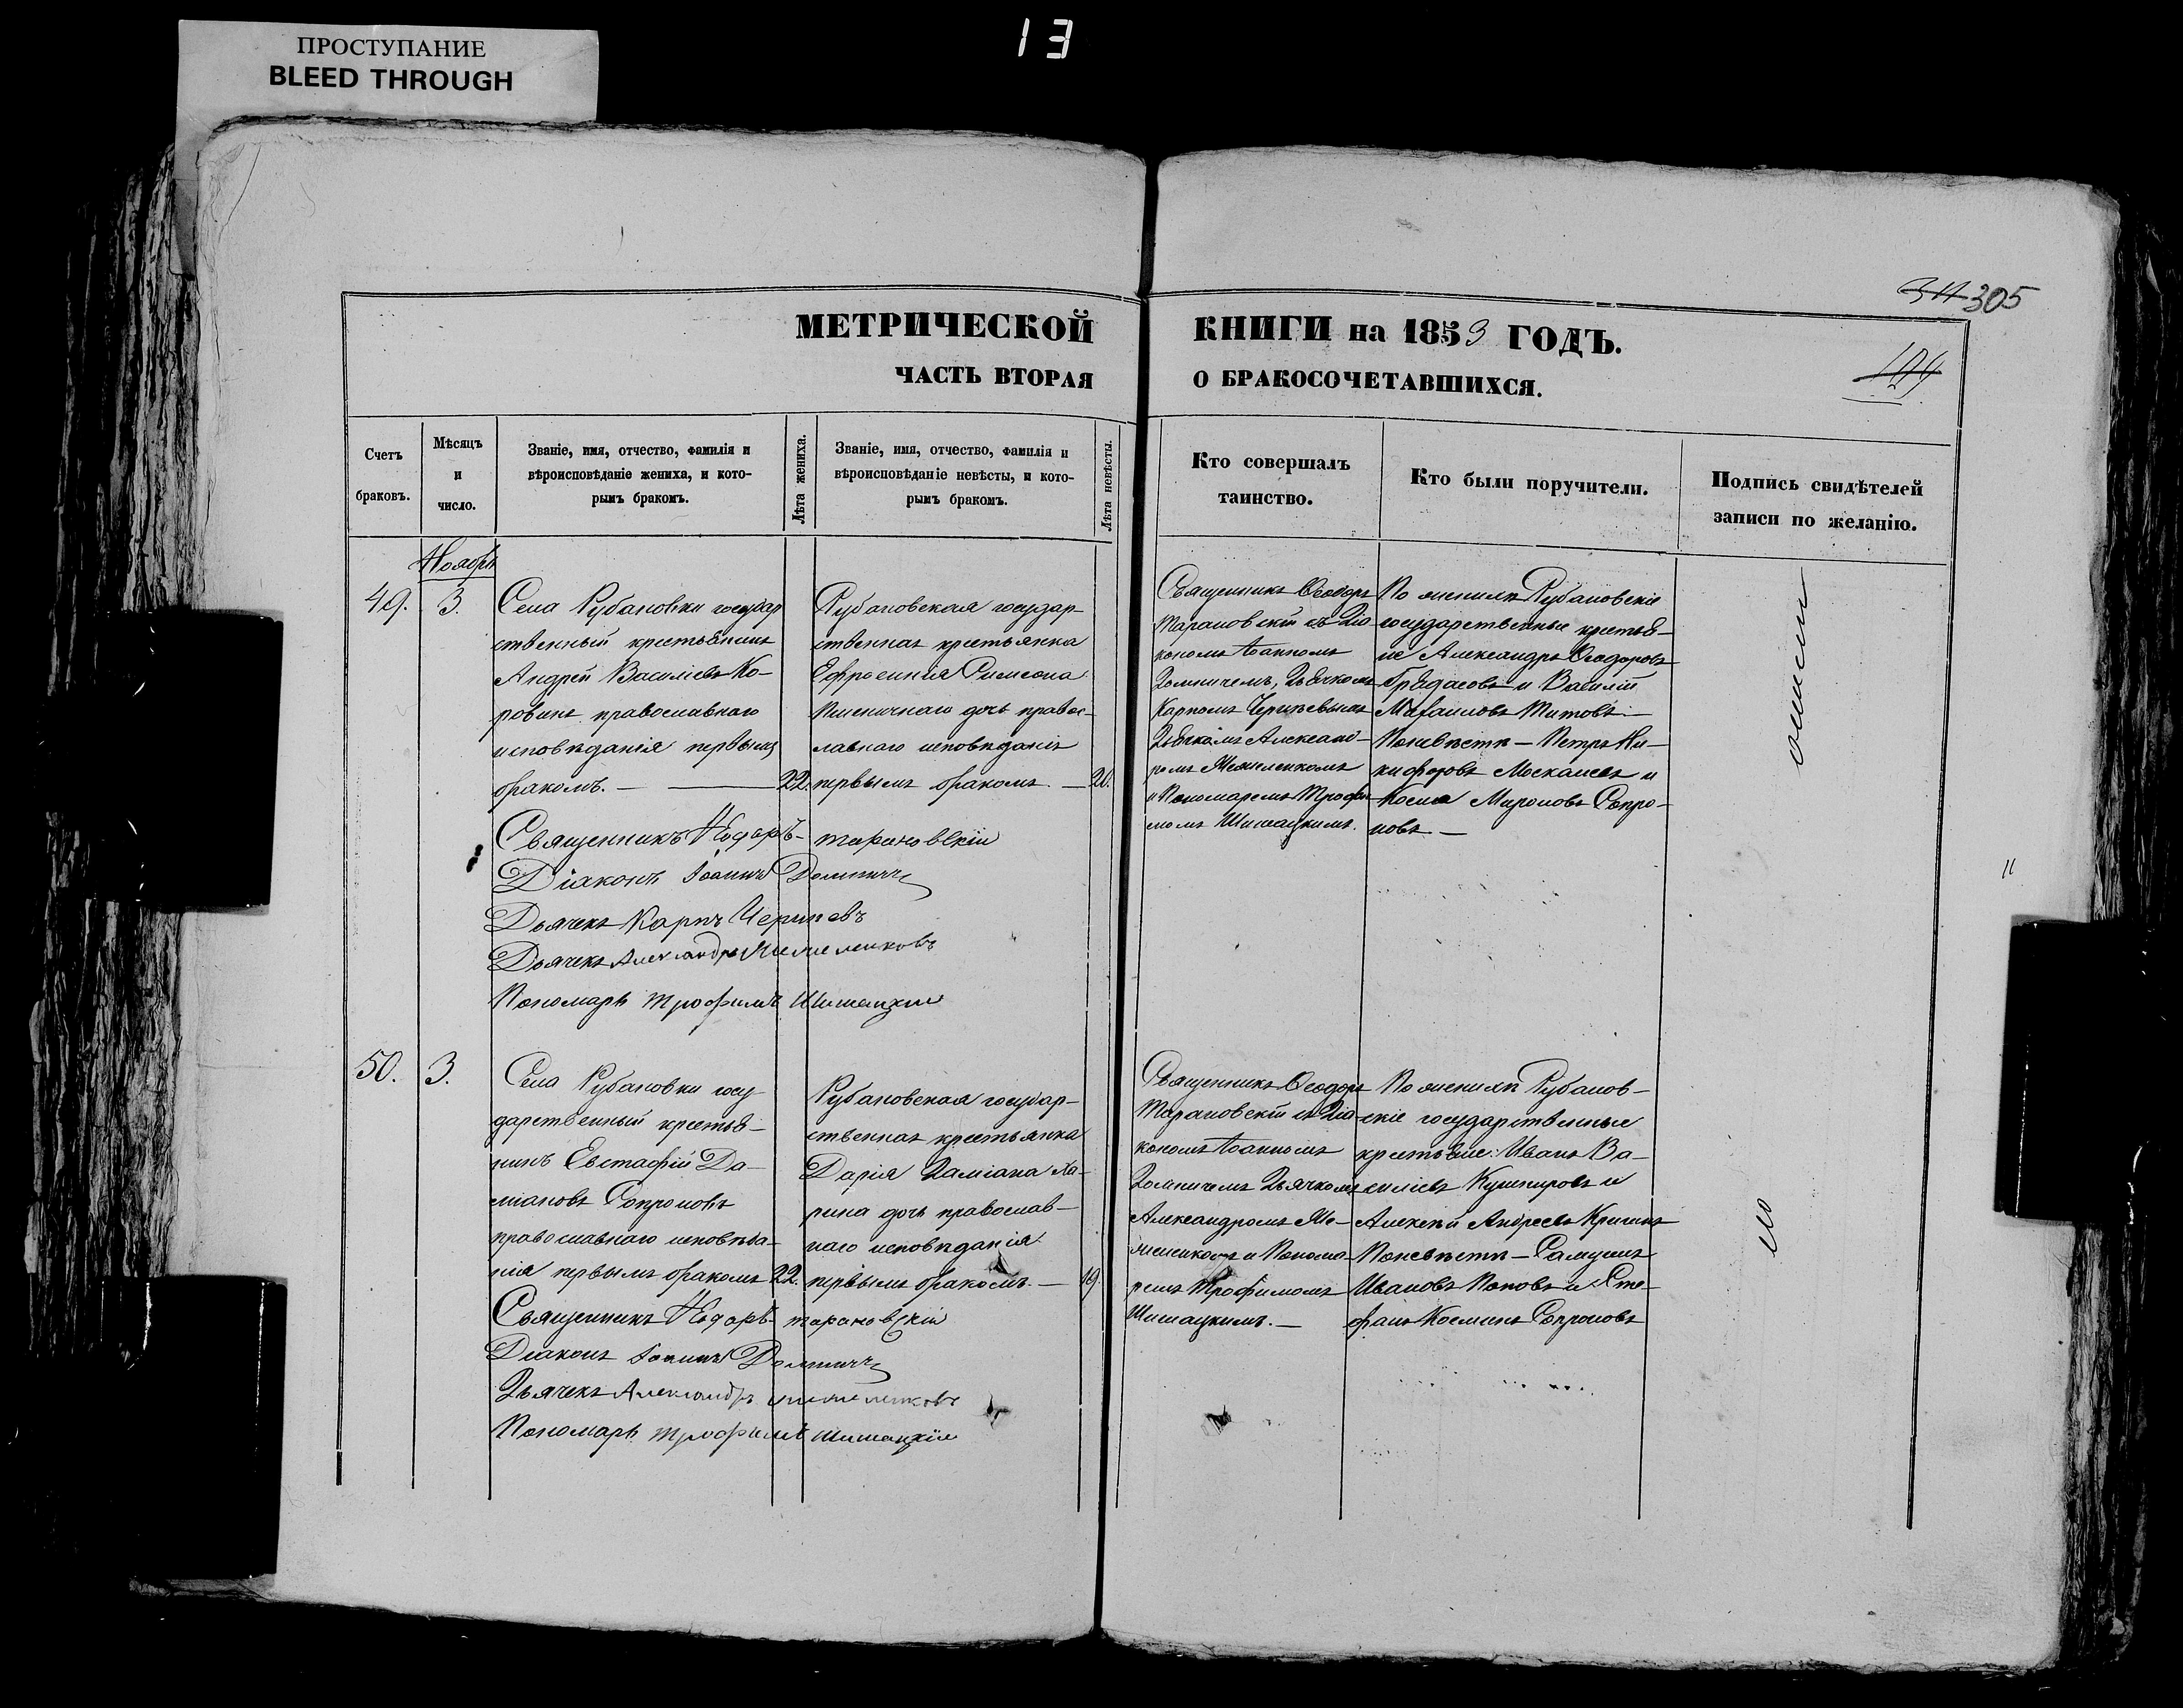 13
ПРОСТУПАНИЕ
BLEED THROUGH
305
МЕТРИЧЕСКОЙ КНИГИ на 1853 ГОДЪ.
ЧАСТЬ ВТОРАЯ О БРАКОСОЧЕТАВШИХСЯ.
Счетъ
браковъ.
Мѣсяцъ
и
число.
Званіе, имя, отчество, фамилія и
вѣроисповѣданіе жениха, и кото-
рымъ бракомъ.
Лѣта жениха.
Званіе, имя, отчество, фамилія и
вѣроисповѣданіе невѣсты, и кото-
рымъ бракомъ.
Лѣта невѣсты.
Кто совершалъ
таинство.
Кто были поручители.
Подпись свидѣтелей
записи по желанію.
Ноябрь
49.
3.
Села Рубановки государ
ственный крестьянинъ
Андрей Василіевъ Ко-
ровинъ православнаго
исповѣданія первымъ
бракомъ. —
22.
Рубановская государ-
ственная крестьянка
Ефросинія Симеона
Пшеничнаго дочь правос-
лавнаго исповѣданія
первымъ бракомъ —
20.
Священникъ Ѳеодоръ
Тарановскій съ Діа-
кономъ Іоанномъ
Домничемъ, Дьячкомъ
Карпомъ
Дьячкомъ Александ-
ромъ
и Пономаремъ Трофи-
момъ Шишацкимъ.
По женихѣ Рубановскіе
государственные крестья-
не Александръ Ѳеодоровъ
и Василій
Михаиловъ Титовъ —
По невѣстѣ — Петръ Ни-
кифоровъ Москалевъ и
Косма Мироновъ Сопро-
новъ —
Священникъ Ѳеодоръ Тарановскій
Діаконъ Іоаннъ Домничъ
Дьячекъ Карпъ
Дьячекъ Александръ
Пономарь Трофимъ Шишацкій
50.
3.
Села Рубановки госу
дарственный крестья-
нинъ Евстафій Да-
міановъ Сопроновъ
православнаго исповѣда-
нія первымъ бракомъ
22.
Рубановская государ-
ственная крестьянка
Дарія Даміана Ла-
рина дочь православ-
наго исповѣданія
первымъ бракомъ. —
19.
Священникъ Ѳеодоръ
Тарановскій съ Діа-
кономъ Іоанномъ
Домничемъ Дьячкомъ
Александромъ
и Понома-
ремъ Трофимомъ
Шишацкимъ. —
По женихѣ Рубанов-
скіе государственные
крестьяне: Иванъ Ва-
силіевъ Кушнировъ и
Алексѣй Андреевъ
По невѣстѣ — Самуилъ
Ивановъ Поповъ и Сте-
фанъ Косминъ Сопроновъ
Священникъ Ѳеодоръ Тарановскій
Діаконъ Іоаннъ Домничъ
Дьячекъ Александръ
Пономарь Трофимъ Шишацкій